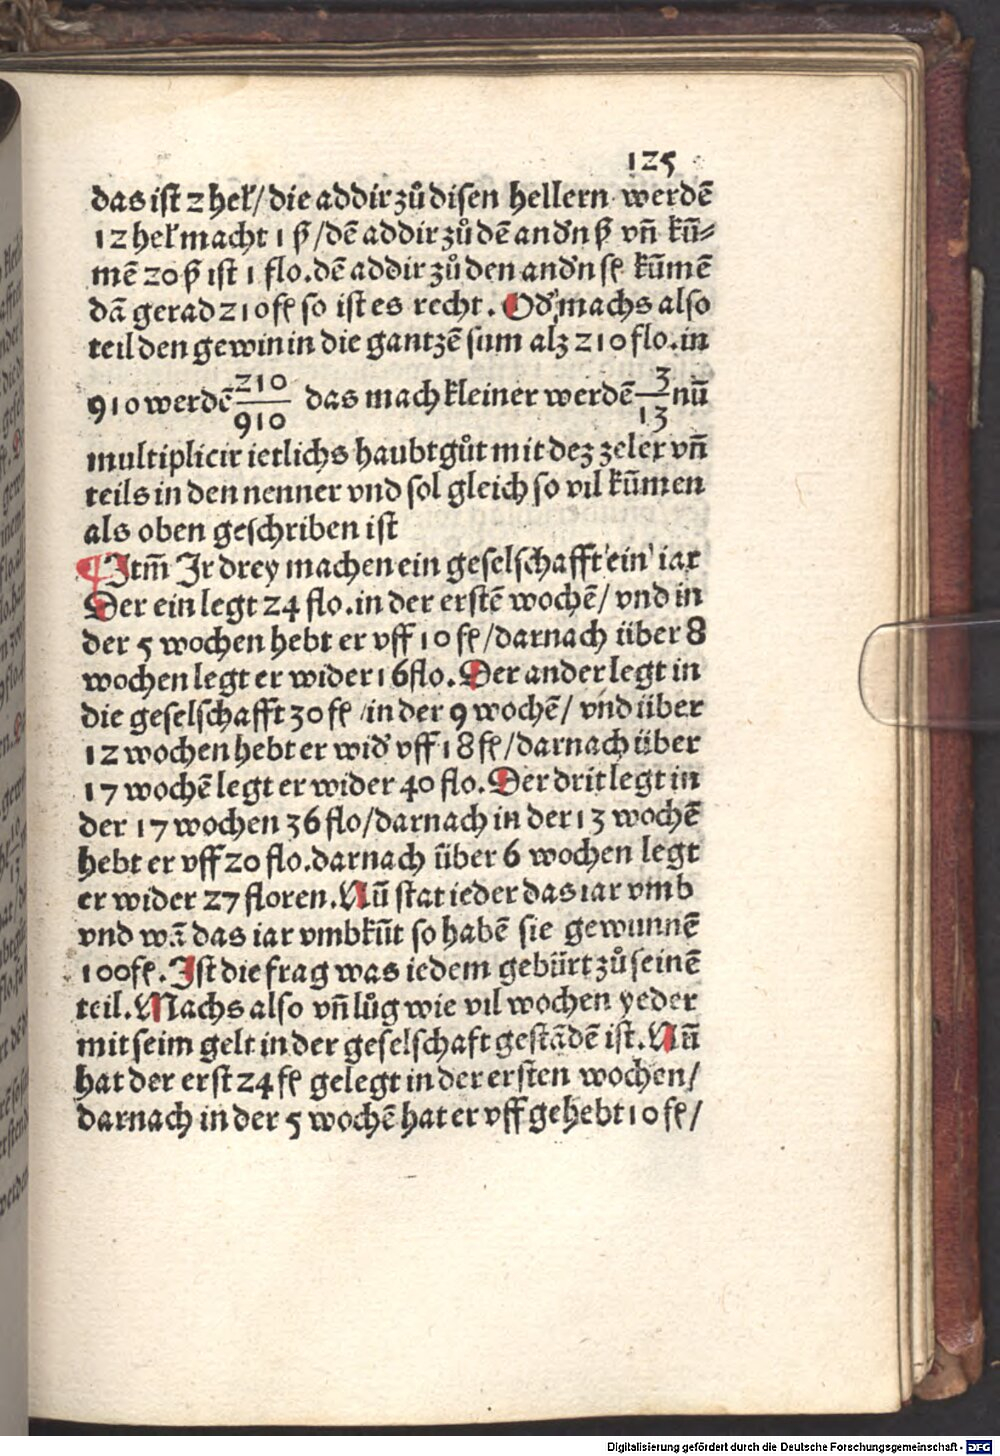 125
das ist 2 hel̕/ die addir zů disen hellern werdē
12 hel̕ macht 1 ß /dē addir zů dē andn̕ ß vn̄ kū⸗
mē 20 ß ist 1 flo. dē addir zů den andn̕ fl̕ kūmē
dā gerad 210 fl̕ so ist es recht. Od̕ machs also
teil den gewin in die gantzē sum alz 210 flo. in
910 werdē 210/910 das mach kleiner werdē 3/13 nū
multiplicir ietlichs haubtgůt mit dez zeler vn̄
teils in den nenner vnd sol gleich so vil kūmen
als oben geschriben ist
¶ Itm̄ Ir drey machen ein geselschafft ein̕ iar
Der ein legt 24 flo. in der erstē wochē/ vnd in
der 5 wochen hebt er vff 10 fl̕/darnach über 8
wochen legt er wider 16 flo. Der ander legt in
die geselschafft 30 fl̕ /in der 9 wochē/ vnd über
12 wochen hebt er wid̕ vff 18 fl̕/darnach über
17 wochē legt er wider 40 flo. Der drit legt in
der 17 wochen 36 flo/darnach in der 13 wochē
hebt er vff 20 flo. darnach über 6 wochen legt
er wider 27 floren. Nū stat ieder das iar vmb
vnd wā das iar vmbkūt so habē sie gewunnē
100 fl̕. Ist die frag was iedem gebürt zů seinē
teil. Machs also vn̄ lůg wie vil wochen yeder
mit seim gelt in der geselschaft gestādē ist. Nūn
hat der erst 24 fl̕ gelegt in der ersten wochen/
darnach in der 5 wochē hat er vff gehebt 10 fl̕/
Digitalisierung gefördert durch die Deutsche Forschungsgemeinschaft - DFG